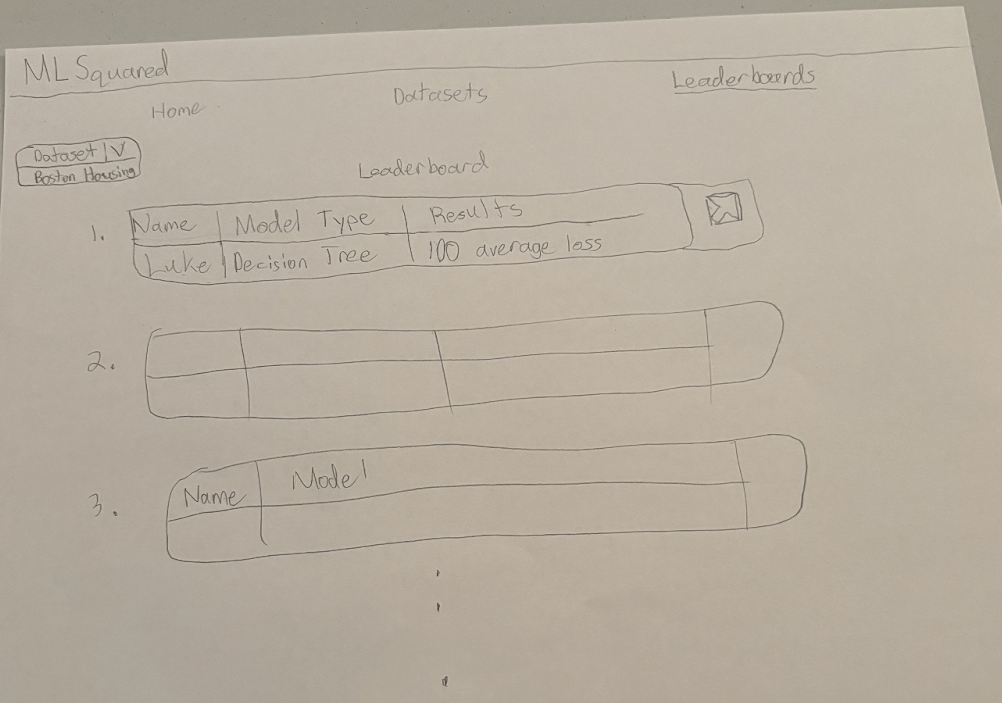 ML Squared
Home Datasets Leaderboards
Dataset V
Boston Housing
Leaderboard
1. Name Model Type Results
Luke Decision Tree 100 average loss
2.
3. Name Model